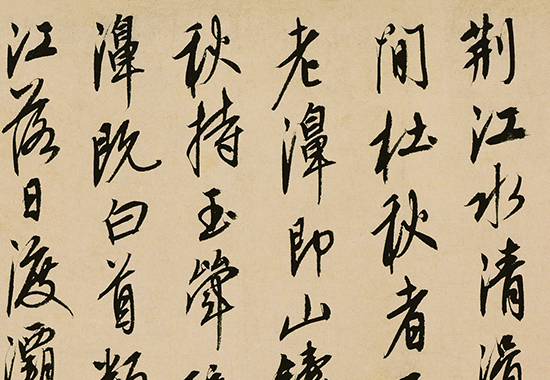 荊江水清滑
間杜秋者
老濞即山鑄
秋持玉斝
濞既白首
江落日渡灞